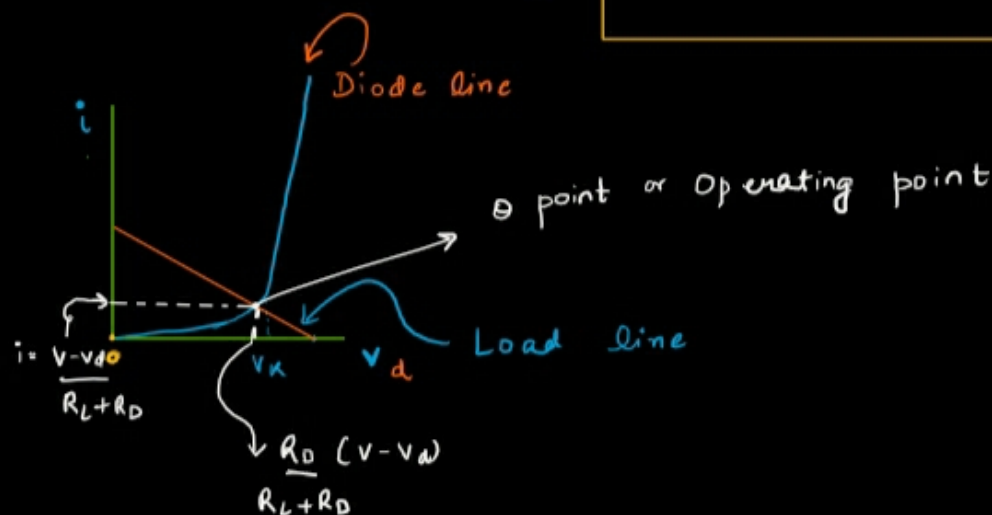 Diode line
i
Q point or Operating point
Load line
VK
Vd
0
i = V-Vd
RL+RD
RD (V-Vd)
RL+RD